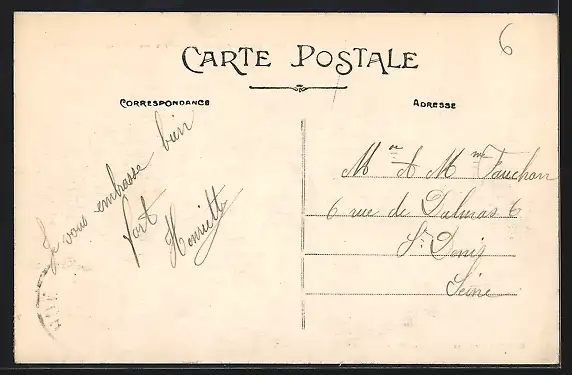 6
CARTE POSTALE
CORRESPONDANCE
ADRESSE
Je vous embrasse bien
fort
Henriette
M et M me Fauchon
6 rue de Dalmas 6
St Denis
Seine